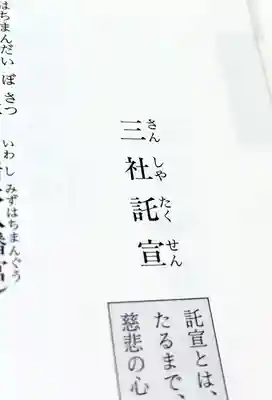 三社託宣
さんしやたくせん
託宣とは、
たるまで、
慈悲の心
はちまんだいぼさつ
いわしみずはちまんぐう